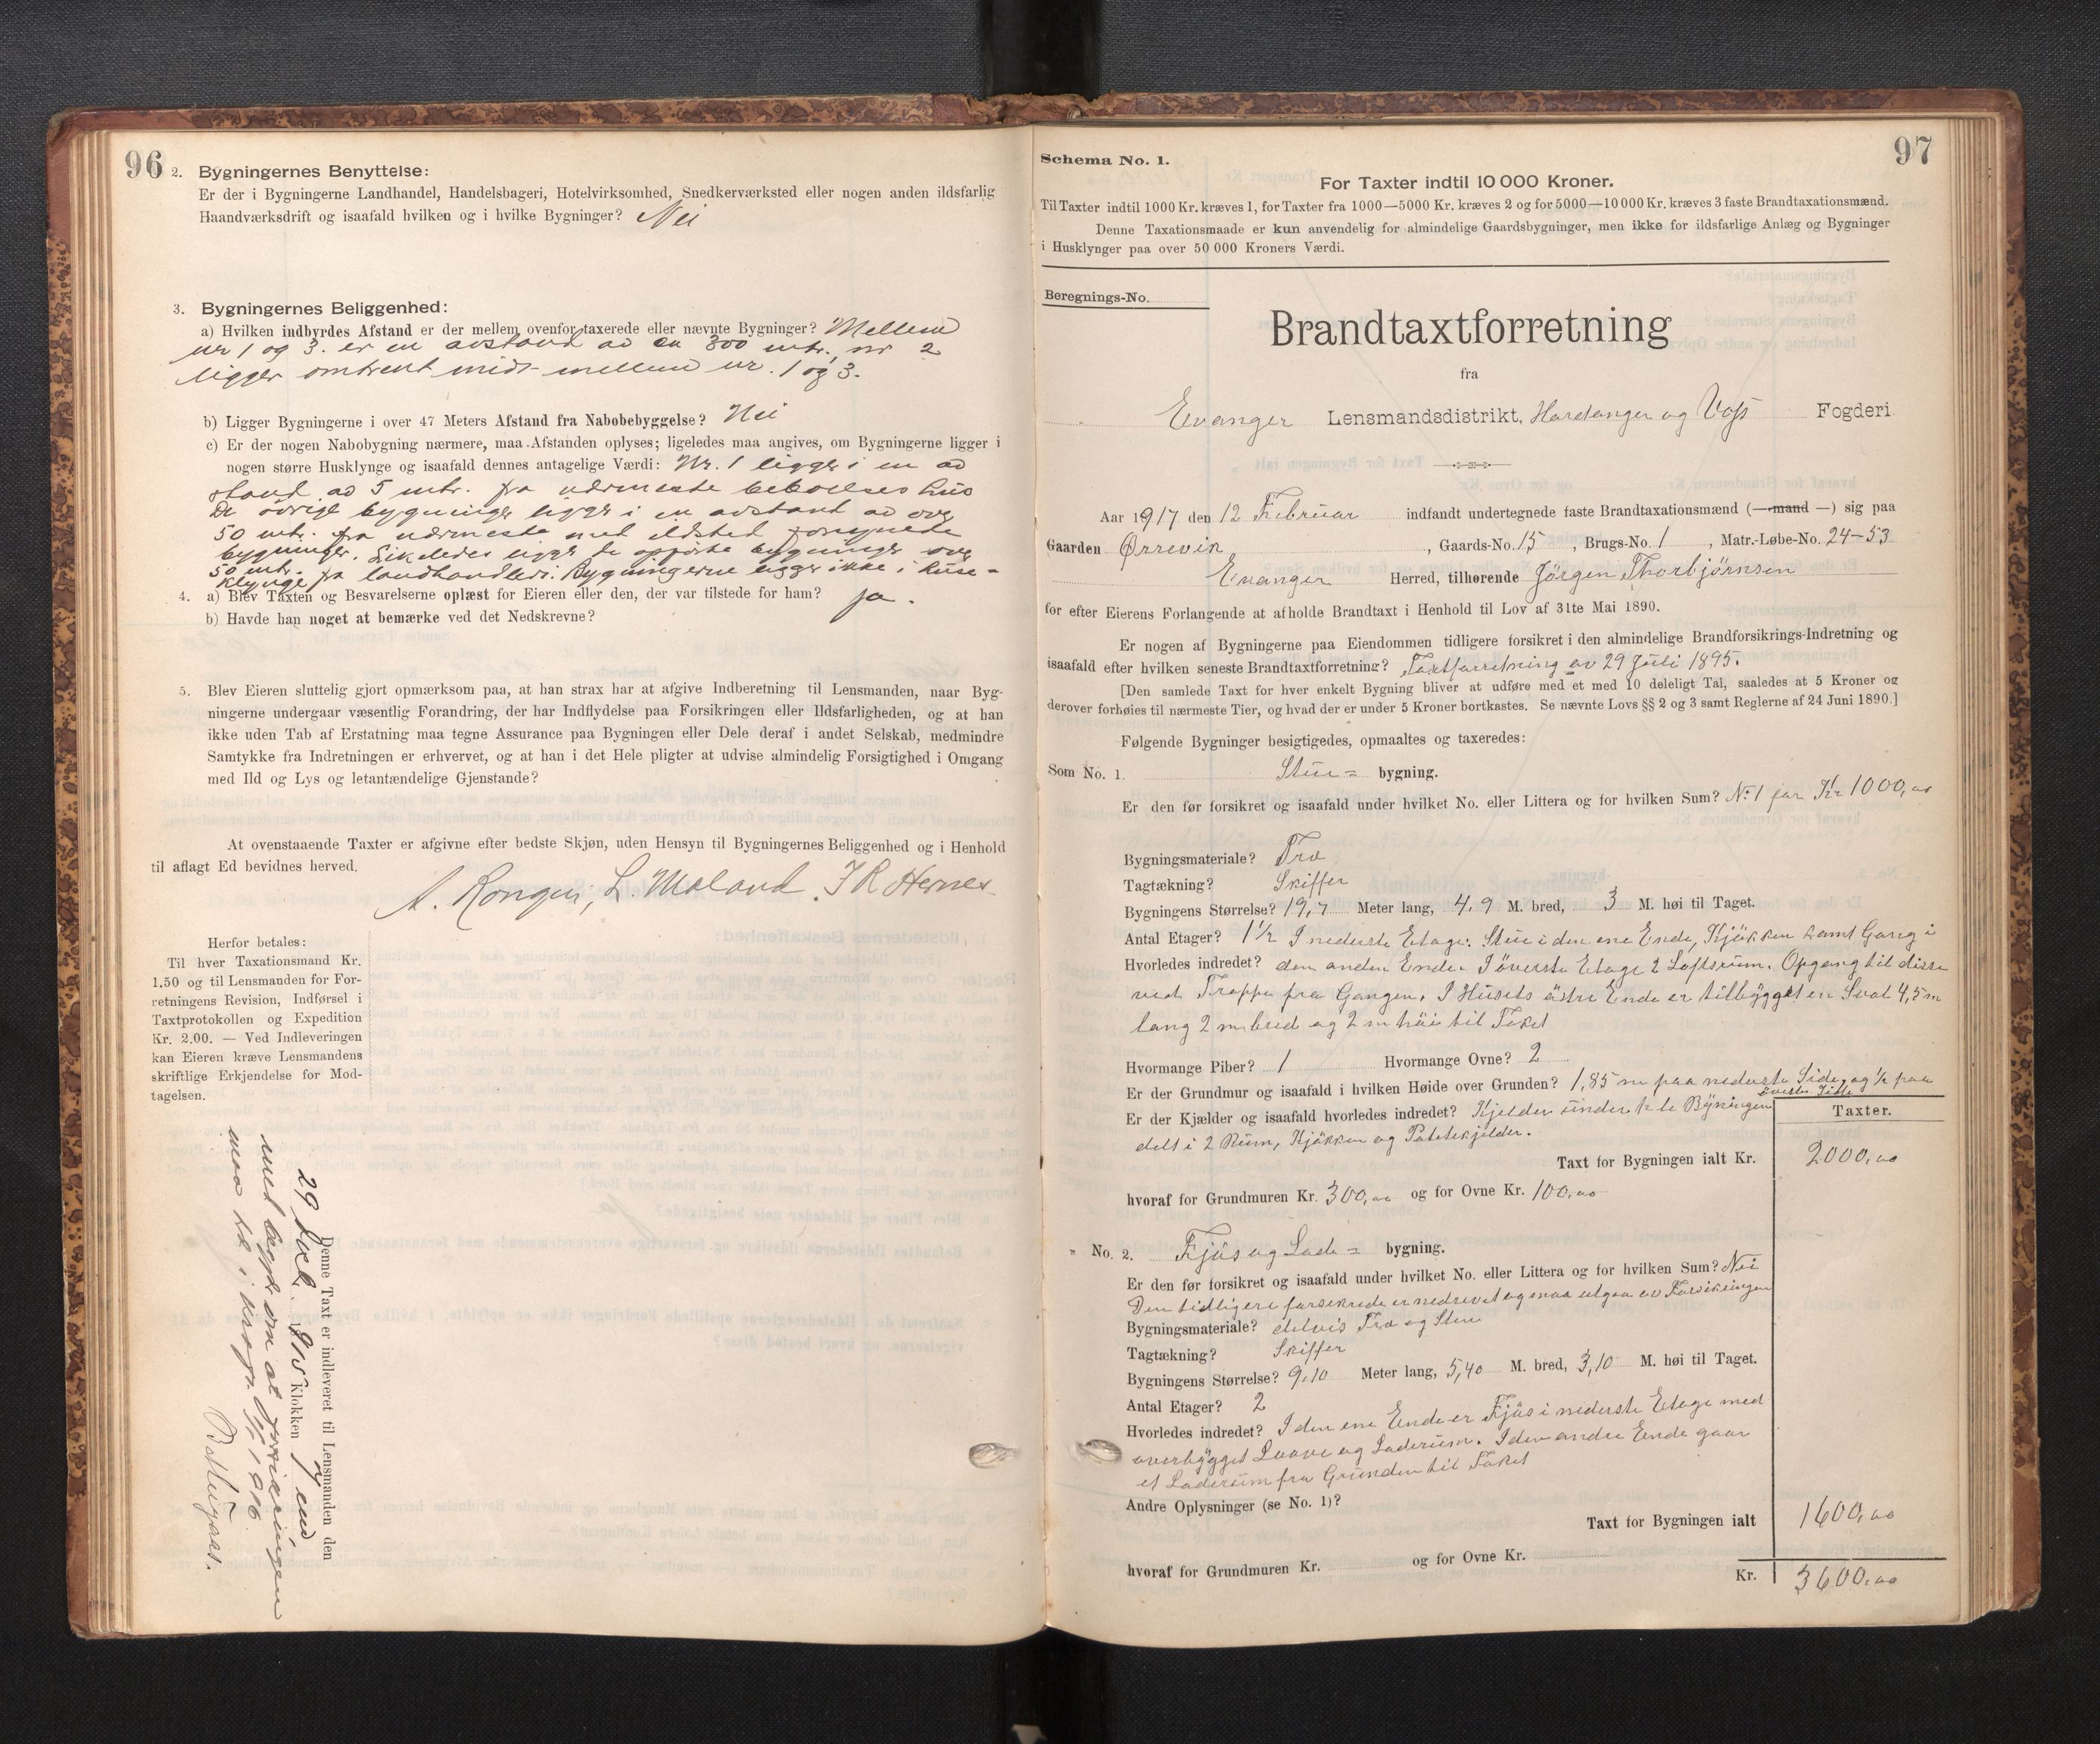 96
2. Bygningernes Benyttelse:
Er der i Bygningerne Landhandel, Handelsbageri, Hotelvirksomhed, Snedkerværksted eller nogen anden ildsfarlig
Haandværksdrift og isaafald hvilken og i hvilke Bygninger? Nei
3. Bygningernes Beliggenhed:
a) Hvilken indbyrdes Afstand er der mellem ovenfor taxerede eller nævnte Bygninger? Mellem
nr 1 og 3. er en avstand av ca 300 mtr., nr 2
ligger omtrent midt mellem nr. 1 og 3.
b) Ligger Bygningerne i over 47 Meters Afstand fra Nabobebyggelse? Nei
c) Er der nogen Nabobygning nærmere, maa Afstanden oplyses; ligeledes maa angives, om Bygningerne ligger i
nogen større Husklynge og isaafald dennes antagelige Værdi: Nr. 1 ligger i en av
stand av 5 mtr. fra nærmeste beboelseshus
De övrige bygninger ligger i en avstand av over
50 mtr. fra nærmeste med ildsted forsynede
bygninger. Likeledes ligger de opførte bygninger over
50 mtr. fra landhandleri. Bygningerne ligger ikke i huse-
klynge
4. a) Blev Taxten og Besvarelserne oplæst for Eieren eller den, der var tilstede for ham? ja.
b) Havde han noget at bemærke ved det Nedskrevne?
5. Blev Eieren sluttelig gjort opmærksom paa, at han strax har at afgive Indberetning til Lensmanden, naar Byg-
ningerne undergaar væsentlig Forandring, der har Indflydelse paa Forsikringen eller Ildsfarligheden, og at han
ikke uden Tab af Erstatning maa tegne Assurance paa Bygningen eller Dele deraf i andet Selskab, medmindre
Samtykke fra Indretningen er erhvervet, og at han i det Hele pligter at udvise almindelig Forsigtighed i Omgang
med Ild og Lys og letantændelige Gjenstande?
At ovenstaaende Taxter er afgivne efter bedste Skjøn, uden Hensyn til Bygningernes Beliggenhed og i Henhold
til aflagt Ed bevidnes herved.
A. Rongen, L. Moland. I R Hernes
Herfor betales:
Til hver Taxationsmand Kr.
1.50 og til Lensmanden for For-
retningens Revision, Indførsel i
Taxtprotokollen og Expedition
Kr. 2.00. — Ved Indleveringen
kan Eieren kræve Lensmandens
skriftlige Erkjendelse for Mod-
tagelsen.
Denne Taxt er indleveret til Lensmanden den
29 1915 Klokken
med at forsikringen
maa i 1916
97
Schema No. 1.
For Taxter indtil 10 000 Kroner.
Til Taxter indtil 1000 Kr. kræves 1, for Taxter fra 1000—5000 Kr. kræves 2 og for 5000—10000 Kr. kræves 3 faste Brandtaxationsmænd.
Denne Taxationsmaade er kun anvendelig for almindelige Gaardsbygninger, men ikke for ildsfarlige Anlæg og Bygninger
i Husklynger paa over 50 000 Kroners Værdi.
Beregnings-No.
Brandtaxtforretning
fra
Evanger Lensmandsdistrikt, Hardanger og Voss Fogderi
Aar 1917 den 12 Februar indfandt undertegnede faste Brandtaxationsmænd (— mand —) sig paa
Gaarden Ørrevik, Gaards-No. 15, Brugs-No. 1, Matr.-Løbe-No. 24-53
Evanger Herred, tilhørende Jörgen Thorbjörnsen
for efter Eierens Forlangende at afholde Brandtaxt i Henhold til Lov af 31te Mai 1890.
Er nogen af Bygningerne paa Eiendommen tidligere forsikret i den almindelige Brandforsikrings-Indretning og
isaafald efter hvilken seneste Brandtaxtforretning? Taxtforretning av 29 Juli 1895.
[Den samlede Taxt for hver enkelt Bygning bliver at udføre med et med 10 deleligt Tal, saaledes at 5 Kroner og
derover forhøies til nærmeste Tier, og hvad der er under 5 Kroner bortkastes. Se nævnte Lovs §§ 2 og 3 samt Reglerne af 24 Juni 1890.]
Følgende Bygninger besigtigedes, opmaaltes og taxeredes:
Som No. 1. Stue= bygning.
Er den før forsikret og isaafald under hvilket No. eller Littera og for hvilken Sum? No 1 for Kr 1000,00
Bygningsmateriale? Træ
Tagtækning? Skiffer
Bygningens Størrelse? 19,7 Meter lang, 4,9 M. bred, 3 M. høi til Taget.
Antal Etager? 1 1/2 I nederste Etage: Stue i den ene Ende, Kjökken samt Gang i
Hvorledes indredet? den anden Ende. I överste Etage 2 Loftsrum. Opgang til disse
ved Trappe fra Gangen. I Husets östre Ende er tilbygget en Sval 4,5 m
lang 2 m bred og 2 m höi til Taket
Hvormange Piber? 1 Hvormange Ovne? 2
Er der Grundmur og isaafald i hvilken Høide over Grunden? 1,85 m paa nederste Side, og 1/2 paa
överste Side
Er der Kjælder og isaafald hvorledes indredet? Kjelder under hele Bygningen
delt i 2 Rum, Kjökken og Potetekjelder.
Taxter.
Taxt for Bygningen ialt Kr. 2000,00
hvoraf for Grundmuren Kr. 300,00 og for Ovne Kr. 100,00
" No. 2. Fjös og Lade= bygning.
Er den før forsikret og isaafald under hvilket No. eller Littera og for hvilken Sum? Nei
Den tidligere forsikrede er nedrevet og maa utgaa av Forsikringen
Bygningsmateriale? delvis Træ og Sten
Tagtækning? Skiffer
Bygningens Størrelse? 9,10 Meter lang, 5,40 M. bred, 3,10 M. høi til Taget.
Antal Etager? 2
Hvorledes indredet? I den ene Ende er Fjös i nederste Etage med
overbygget Laave og Laderum. I den andre Ende gaar
et Laderum fra Grunden til Taket
Andre Oplysninger (se No. 1)?
Taxt for Bygningen ialt 1600,00
hvoraf for Grundmuren Kr. og for Ovne Kr.
Kr. 3600,00